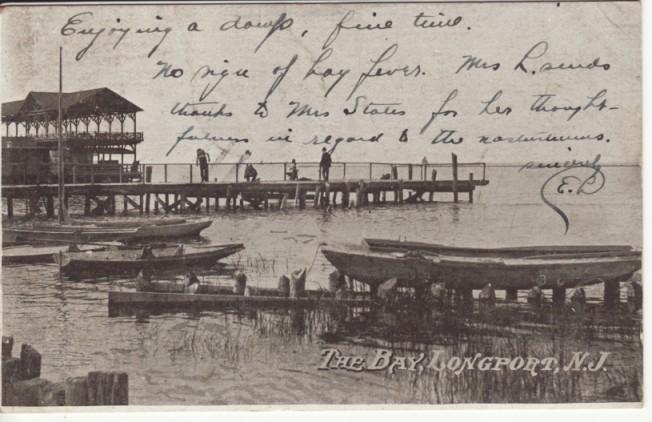 Enjoying a damp, fine time.
No sign of hay fever. Mrs L. sends
thanks to Mrs States for her thought-
fulness in regard to the nasturtiums.
sincerely
E. L
THE BAY, LONGPORT, N.J.